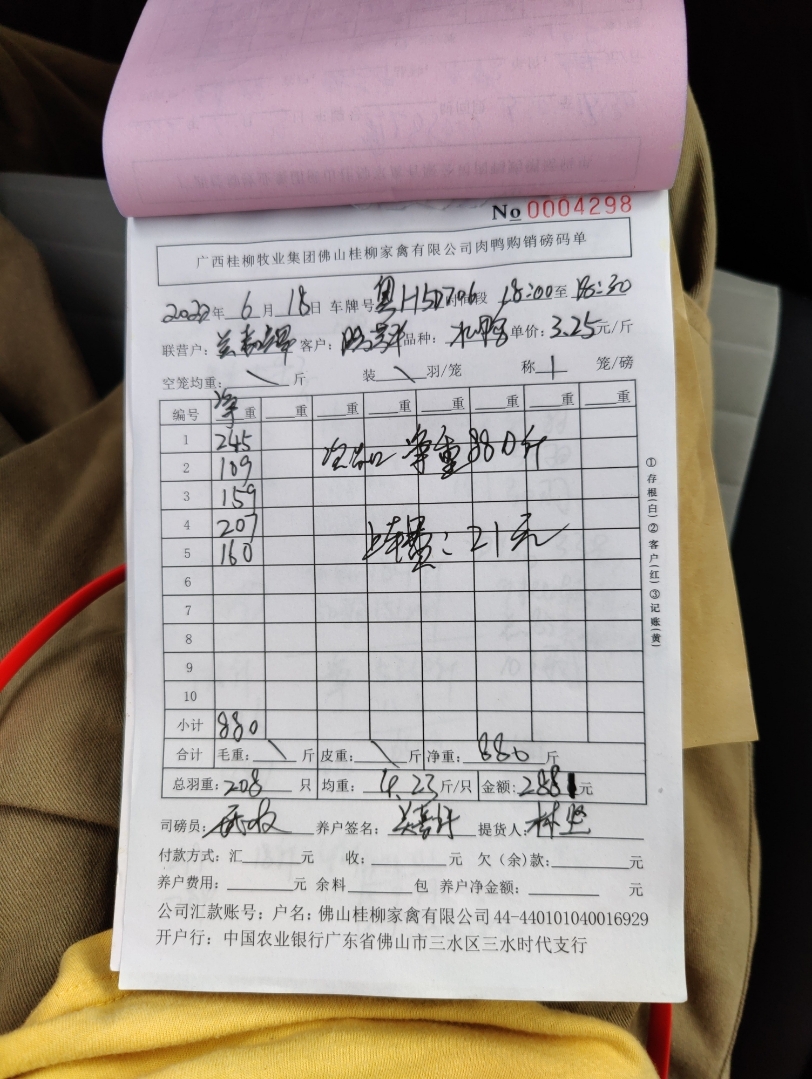 No 0004298
广西桂柳牧业集团佛山桂柳家禽有限公司肉鸭购销磅码单
2022年 6 月 18日 车牌号 粤H5D706 时间段 18:00至 18:30
联营户： 客户： 品种： 单价：3.25元/斤
空笼均重：\ 斤 装 \ 羽/笼 称 1 笼/磅
编号 净重 重 重 重 重 重 重
1 245
2 109 净重880斤
3 159
4 207 上车费：21元
5 160
6
7
8
9
10
小计 880
合计 毛重：\ 斤 皮重：\ 斤 净重：880斤
总羽重：208 只 均重：4.23斤/只 金额：2881元
司磅员： 养户签名： 提货人：林坚
付款方式：汇 元 收： 元 欠（余）款： 元
养户费用： 元 余料 包 养户净金额： 元
公司汇款账号：户名：佛山桂柳家禽有限公司 44-440101040016929
开户行：中国农业银行广东省佛山市三水区三水时代支行
①存根(白)②客户(红)③记账(黄)